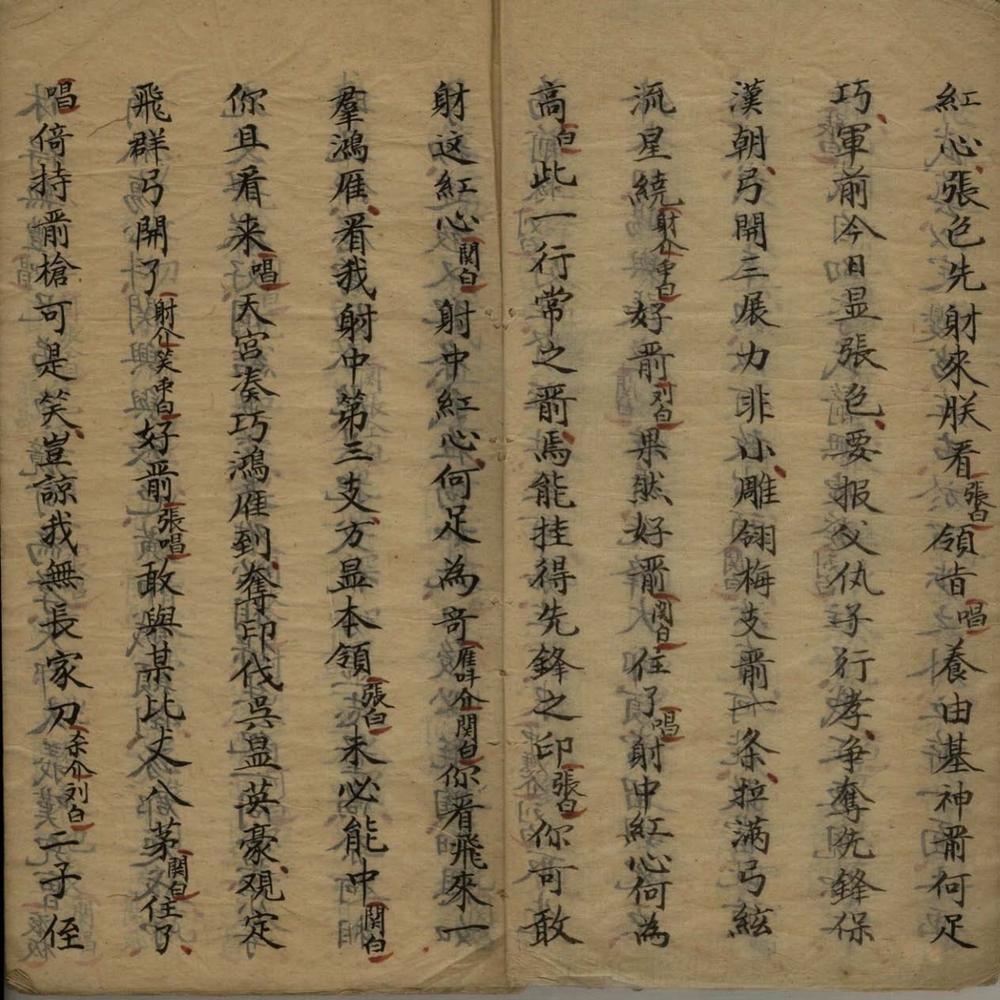 紅心張色先射來朕看張白領旨唱養由基神箭何足
巧軍前今日显張色要报父仇子行孝争奪先鋒保
漢朝弓開三展力非小雕翎梅支箭一条拉滿弓絃
流星繞射介中白好箭刘白果然好箭関白住了唱射中紅心何為
高白此一行常之箭焉能挂得先鋒之印張白你可敢
射这紅心関白射中紅心何足為奇雁叫介関白你看飛來一
羣鴻雁看我射中第三支方显本領張白未必能中関白
你且看来唱天宫凑巧鴻雁到奪印伐吳显英豪观定
飛群弓開了射介笑中白好箭張唱敢與某比丈八茅関白住了
唱倚持箭槍可是笑豈諒我無長家刀杀介刘白二子侄